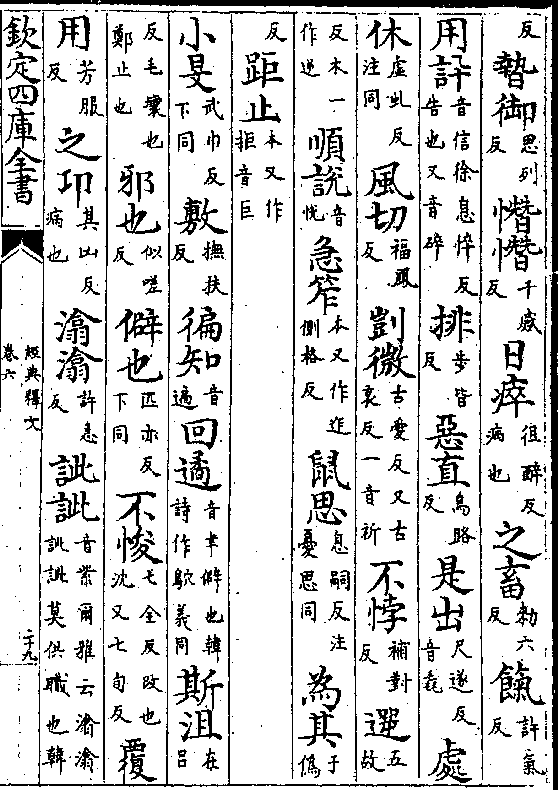 反 暬御思列反 憯憯千感反 日瘁徂醉反病也 之畜勑六反 餼許氣反
用訊音信徐息悴反告也又音碎 排步皆反 惡直烏路反 是出尺遂反音毳 處
休虛虬反注同 風切福鳳反 剴微古愛反又古哀反一音祈 不悖補對反 遻五故
反本一作逆 順說音悅 急笮本又作迮側格反 鼠思息嗣反注憂思同 為其于偽
反 距止本又作拒音巨
小旻武巾反下同 敷撫扶反 徧知音遍 回遹音聿僻也韓詩作鴥義同 斯沮在吕
反毛壞也鄭止也 邪也似嗟反 僻也匹亦反下同 不悛七全反改也沈又七旬反 覆
用芳服反 之邛其凶反病也 潝潝許急反 訿訿音紫爾雅云潝潝訿訿莫供職也韓
欽定四庫全書
經典釋文
卷六
二十九